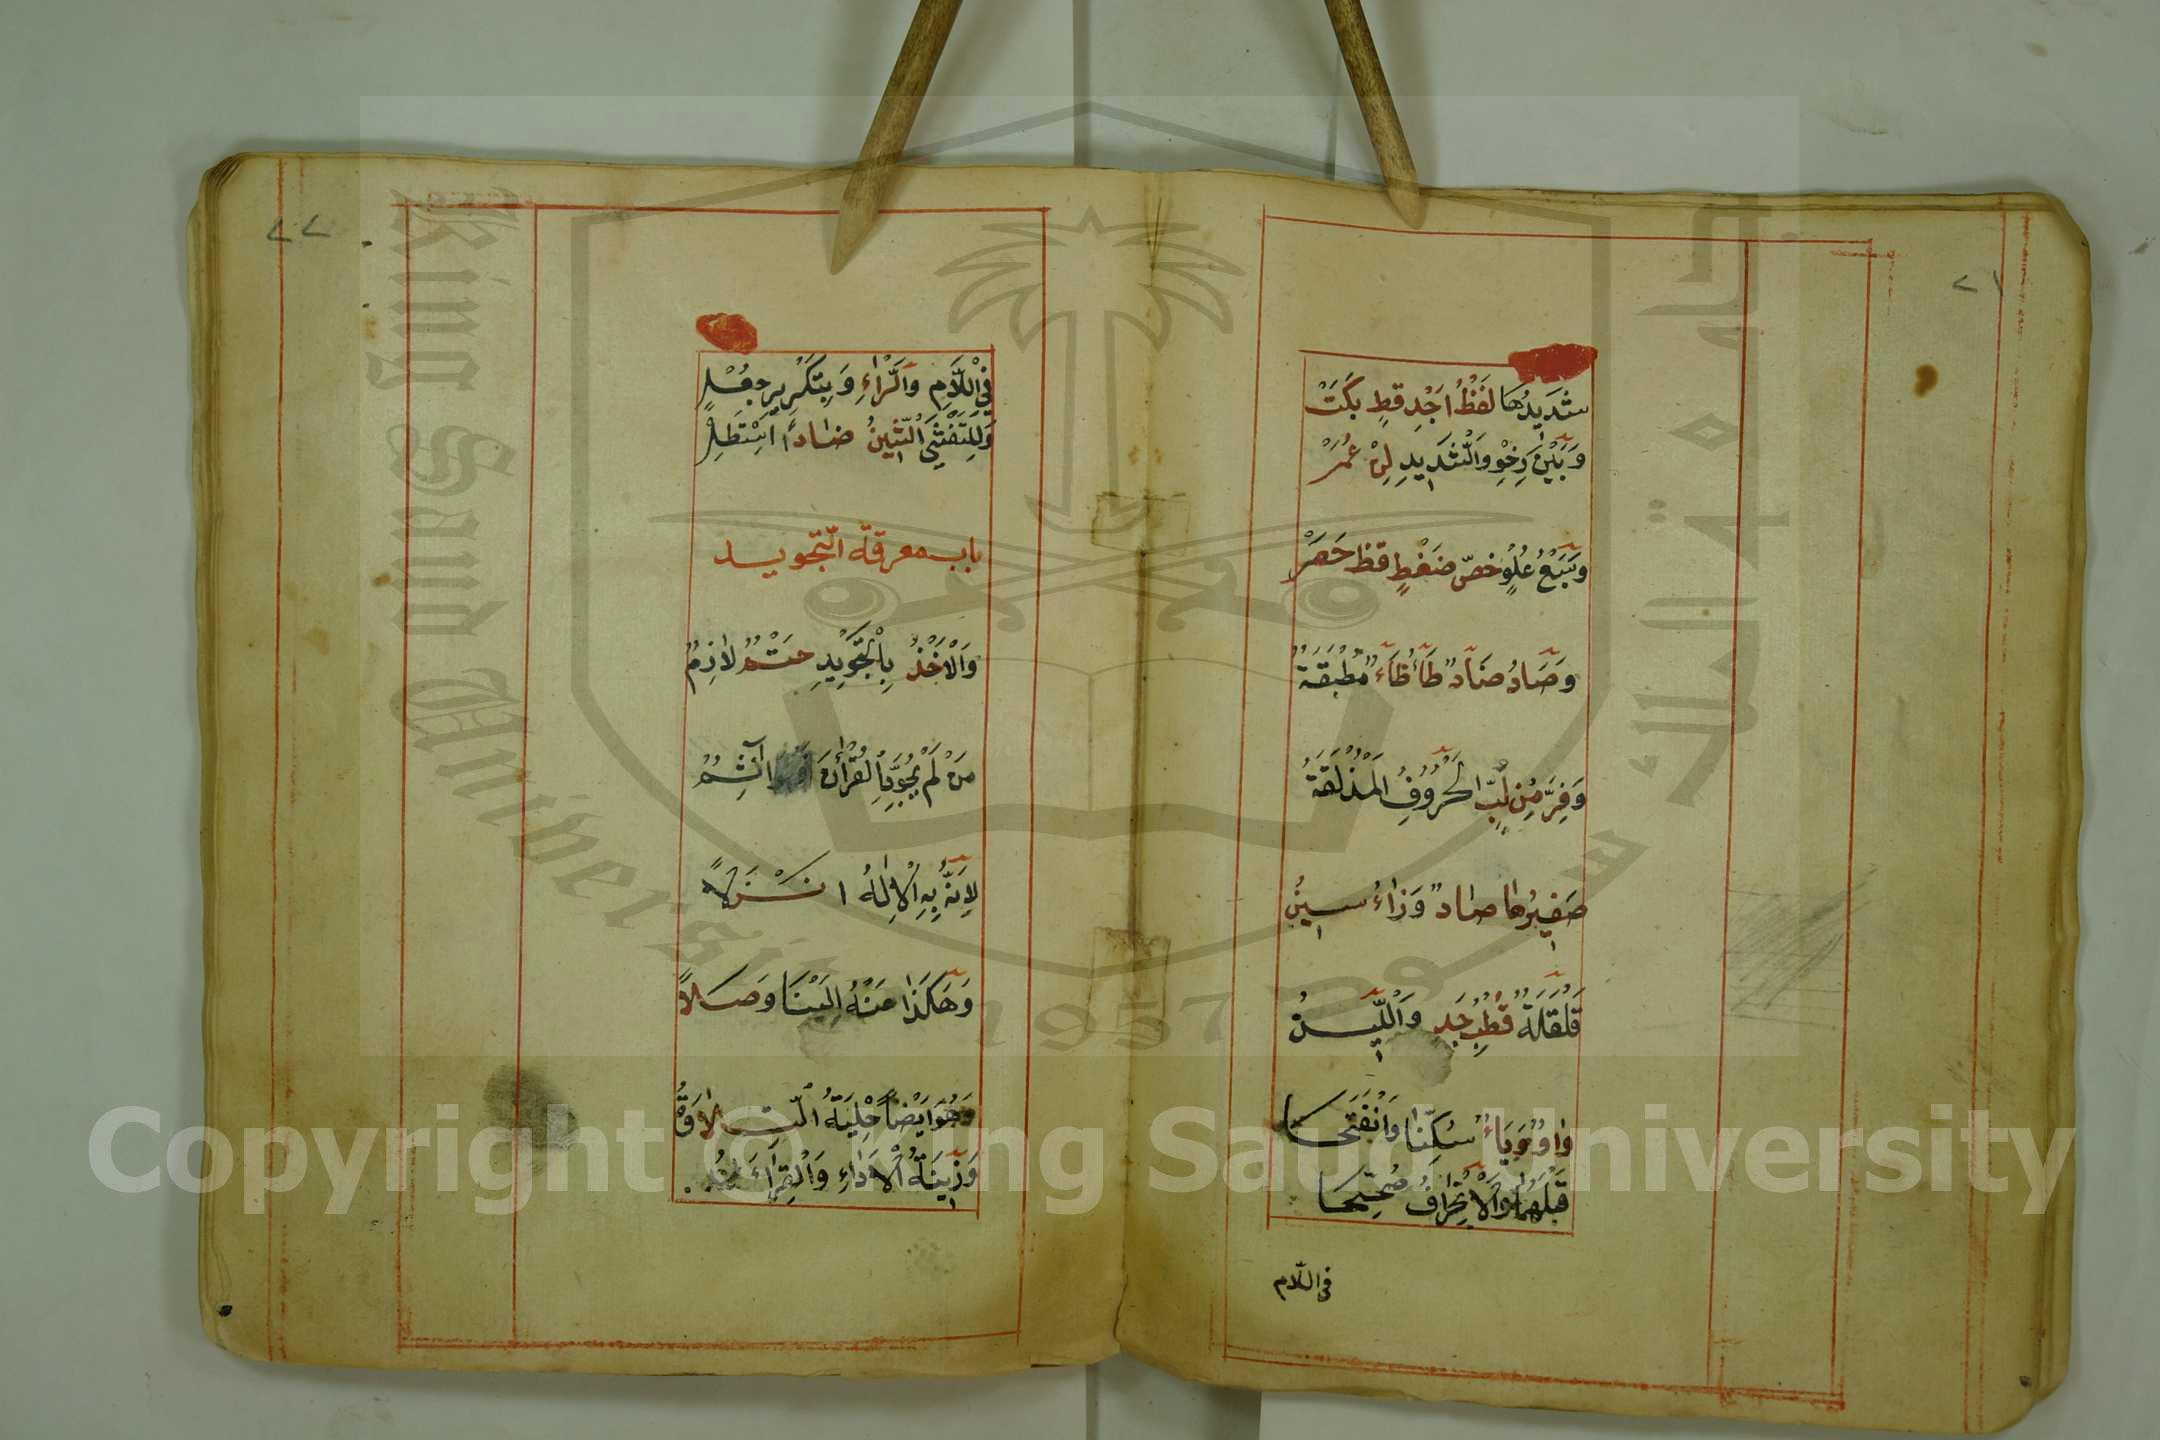 ٢١
شَدِيدُهَا لَفْظُ اَجْدِ قَطٍ بَكَتْ
وَبَيْنَ رِخْوٍ وَالشَّدِيدِ لِنْ عُمَرْ
وَسَبْعُ عُلْوٍ خُصَّ ضَغْطٍ قِظْ حَصَرْ
وَصَادُ ضَادٌ طَاءُ ظَاءٌ مُطْبَقَةٌ
وَفِرَّ مِنْ لُبِّ الْحُرُوفِ الْمُذْلَقَةُ
صَفِيرُهَا صَادٌ وَزَاءُ سِينُ
قَلْقَلَةٌ قُطْبُ جَدٍ وَاللِّينُ
وَاوٌ وَيَاءٌ سُكِّنَا وَانْفَتَحَا
قَبْلَهُمَا وَالْاِنْحِرَافُ صُحِّحَا
في اللام
٢٢
فِي اللَّامِ وَالرَّاءِ وَبِتَكْرِيرٍ جُعِلْ
وَلِلتَّفَشِّي الشِّينُ ضَادًا اسْتَطِلْ
باب معرفة التجويد
وَالْاَخْذُ بِالتَّجْوِيدِ حَتْمٌ لَازِمٌ
مَنْ لَمْ يُجَوِّدِ الْقُرْاٰنَ اٰثِمُ
لِاَنَّهُ بِهِ الْاِلٰهُ اَنْزَلَا
وَهَكَذَا مِنْهُ اِلَيْنَا وَصَلَا
وَهُوَ اَيْضًا حِلْيَةُ التِّلَاوَةِ
وَزِينَةُ الْاَدَاءِ وَالْقِرَاءَةِ
King Saud University
1957
Copyright © King Saud University